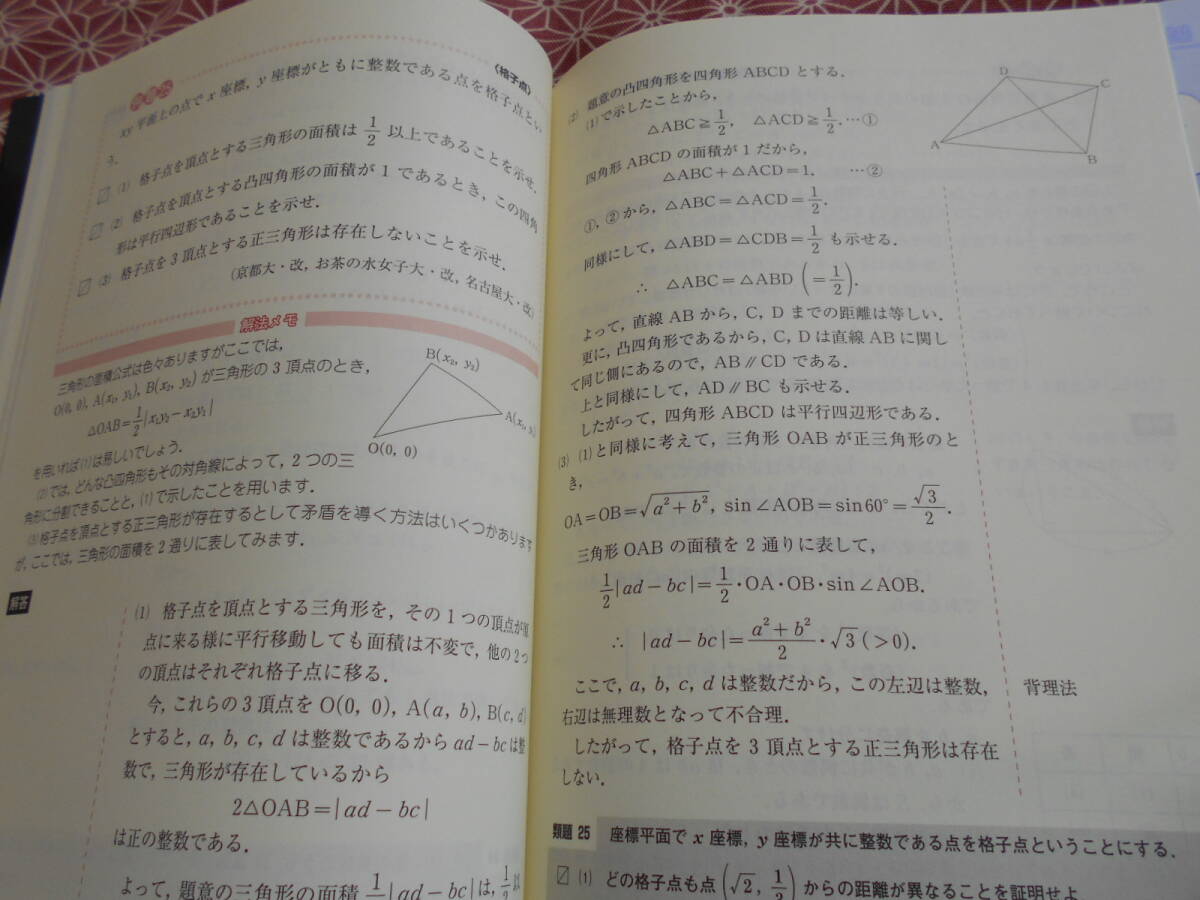 〈格子点〉
xy 平面上の点で x 座標, y 座標がともに整数である点を格子点とい
う.
(1) 格子点を頂点とする三角形の面積は 1/2 以上であることを示せ.
(2) 格子点を頂点とする凸四角形の面積が 1 であるとき, この四角
形は平行四辺形であることを示せ.
(3) 格子点を 3 頂点とする正三角形は存在しないことを示せ.
(京都大・改, お茶の水女子大・改, 名古屋大・改)
解法メモ
三角形の面積公式は色々ありますがここでは,
O(0, 0), A(x₁, y₁), B(x₂, y₂) が三角形の 3 頂点のとき,
△OAB=1/2|x₁y₂−x₂y₁|
を用いれば(1)は易しいでしょう.
(2)では, どんな凸四角形もその対角線によって, 2 つの三
角形に分割できることと, (1)で示したことを用います.
(3)格子点を頂点とする正三角形が存在するとして矛盾を導く方法はいくつかあります
が, ここでは, 三角形の面積を 2 通りに表してみます.
B(x₂, y₂)
A(x₁, y₁)
O(0, 0)
解答
(1) 格子点を頂点とする三角形を, その 1 つの頂点が
点に来る様に平行移動しても面積は不変で, 他の 2 つ
の頂点はそれぞれ格子点に移る.
今, これらの 3 頂点を O(0, 0), A(a, b), B(c, d)
とすると, a, b, c, d は整数であるから ad−bc は整
数で, 三角形が存在しているから
2△OAB=|ad−bc|
は正の整数である.
よって, 題意の三角形の面積 1/2|ad−bc| は, 1/2 以
(2) 題意の凸四角形を四角形 ABCD とする.
(1)で示したことから,
△ABC≧1/2, △ACD≧1/2. …①
四角形 ABCD の面積が 1 だから,
△ABC+△ACD=1. …②
①, ②から, △ABC=△ACD=1/2.
同様にして, △ABD=△CDB=1/2 も示せる.
∴ △ABC=△ABD (=1/2).
よって, 直線 AB から, C, D までの距離は等しい.
更に, 凸四角形であるから, C, D は直線 AB に関し
て同じ側にあるので, AB∥CD である.
上と同様にして, AD∥BC も示せる.
したがって, 四角形 ABCD は平行四辺形である.
D
C
A
B
(3) (1)と同様に考えて, 三角形 OAB が正三角形のと
き,
OA=OB=√(a²+b²), sin∠AOB=sin60°=√3/2.
三角形 OAB の面積を 2 通りに表して,
1/2|ad−bc|=1/2・OA・OB・sin∠AOB.
∴ |ad−bc|=(a²+b²)/2・√3 (>0).
ここで, a, b, c, d は整数だから, この左辺は整数,
右辺は無理数となって不合理.
背理法
したがって, 格子点を 3 頂点とする正三角形は存在
しない.
類題 25 座標平面で x 座標, y 座標が共に整数である点を格子点ということにする.
(1) どの格子点も点 (√2, 1/2) からの距離が異なることを証明せよ